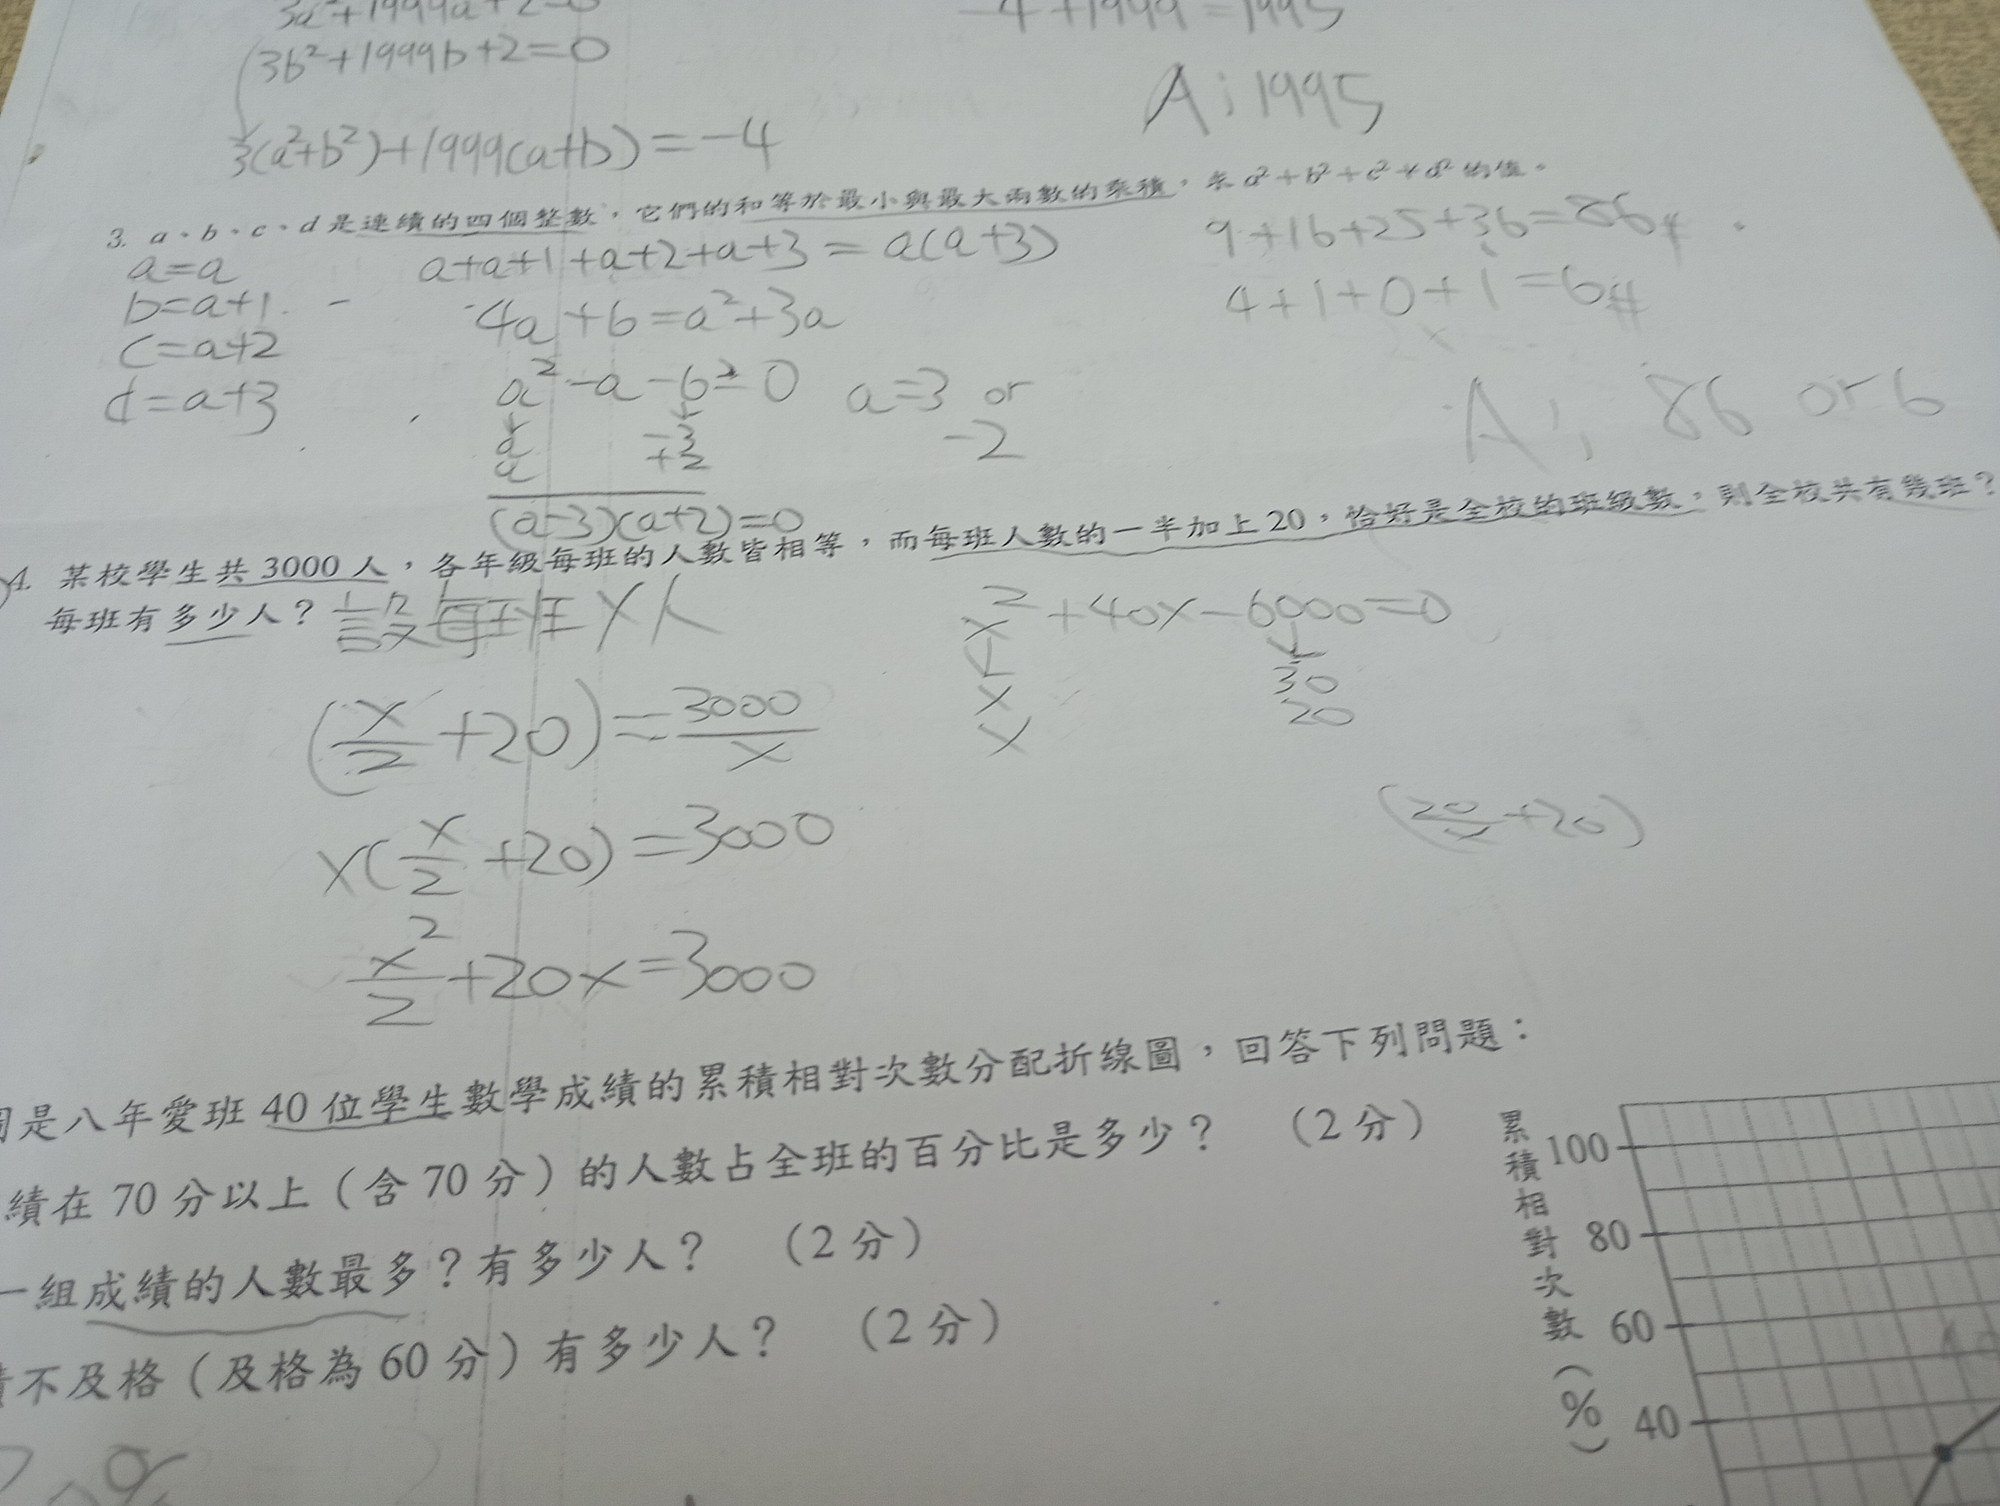 3a²+1999a+2=0
3b²+1999b+2=0
3(a²+b²)+1999(a+b)=-4
-4+1999=1995
A:1995
3. a、b、c、d是連續的四個整數,它們的和等於最小與最大兩數的乘積,求a²+b²+c²+d²的值。
a=a
b=a+1
c=a+2
d=a+3
a+a+1+a+2+a+3=a(a+3)
4a+6=a²+3a
a²-a-6=0
a -3
a +2
(a-3)(a+2)=0
a=3 or
-2
9+16+25+36=86#
4+1+0+1=6#
A: 86 or 6
4. 某校學生共3000人,各年級每班的人數皆相等,而每班人數的一半加上20,恰好是全校的班級數,則全校共有幾班?
每班有多少人?
設每班X人
(x/2+20)=3000/x
x(x/2+20)=3000
x²/2+20x=3000
x²+40x-6000=0
x 30
x 20
是八年愛班40位學生數學成績的累積相對次數分配折線圖,回答下列問題:
績在70分以上(含70分)的人數占全班的百分比是多少? (2分)
一組成績的人數最多?有多少人? (2分)
不及格(及格為60分)有多少人? (2分)
累積相對次數(%)
100
80
60
40